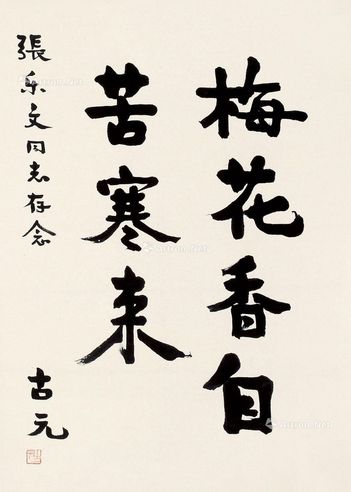 梅花香自
苦寒来
張乐文同志存念
古元
Artron.Net